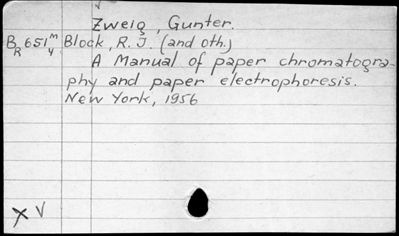 Zweig, Gunter.
BR 651 m4 Block, R.J. (and oth.)
A Manual of paper chromatogra-
phy and paper electrophoresis.
New York, 1956
X V